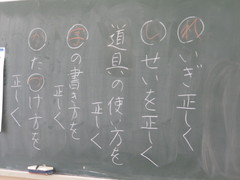 れいぎ正しく
しせいを正しく
道具の使い方を
正しく
字の書き方を
正しく
かたづけ方を
正しく